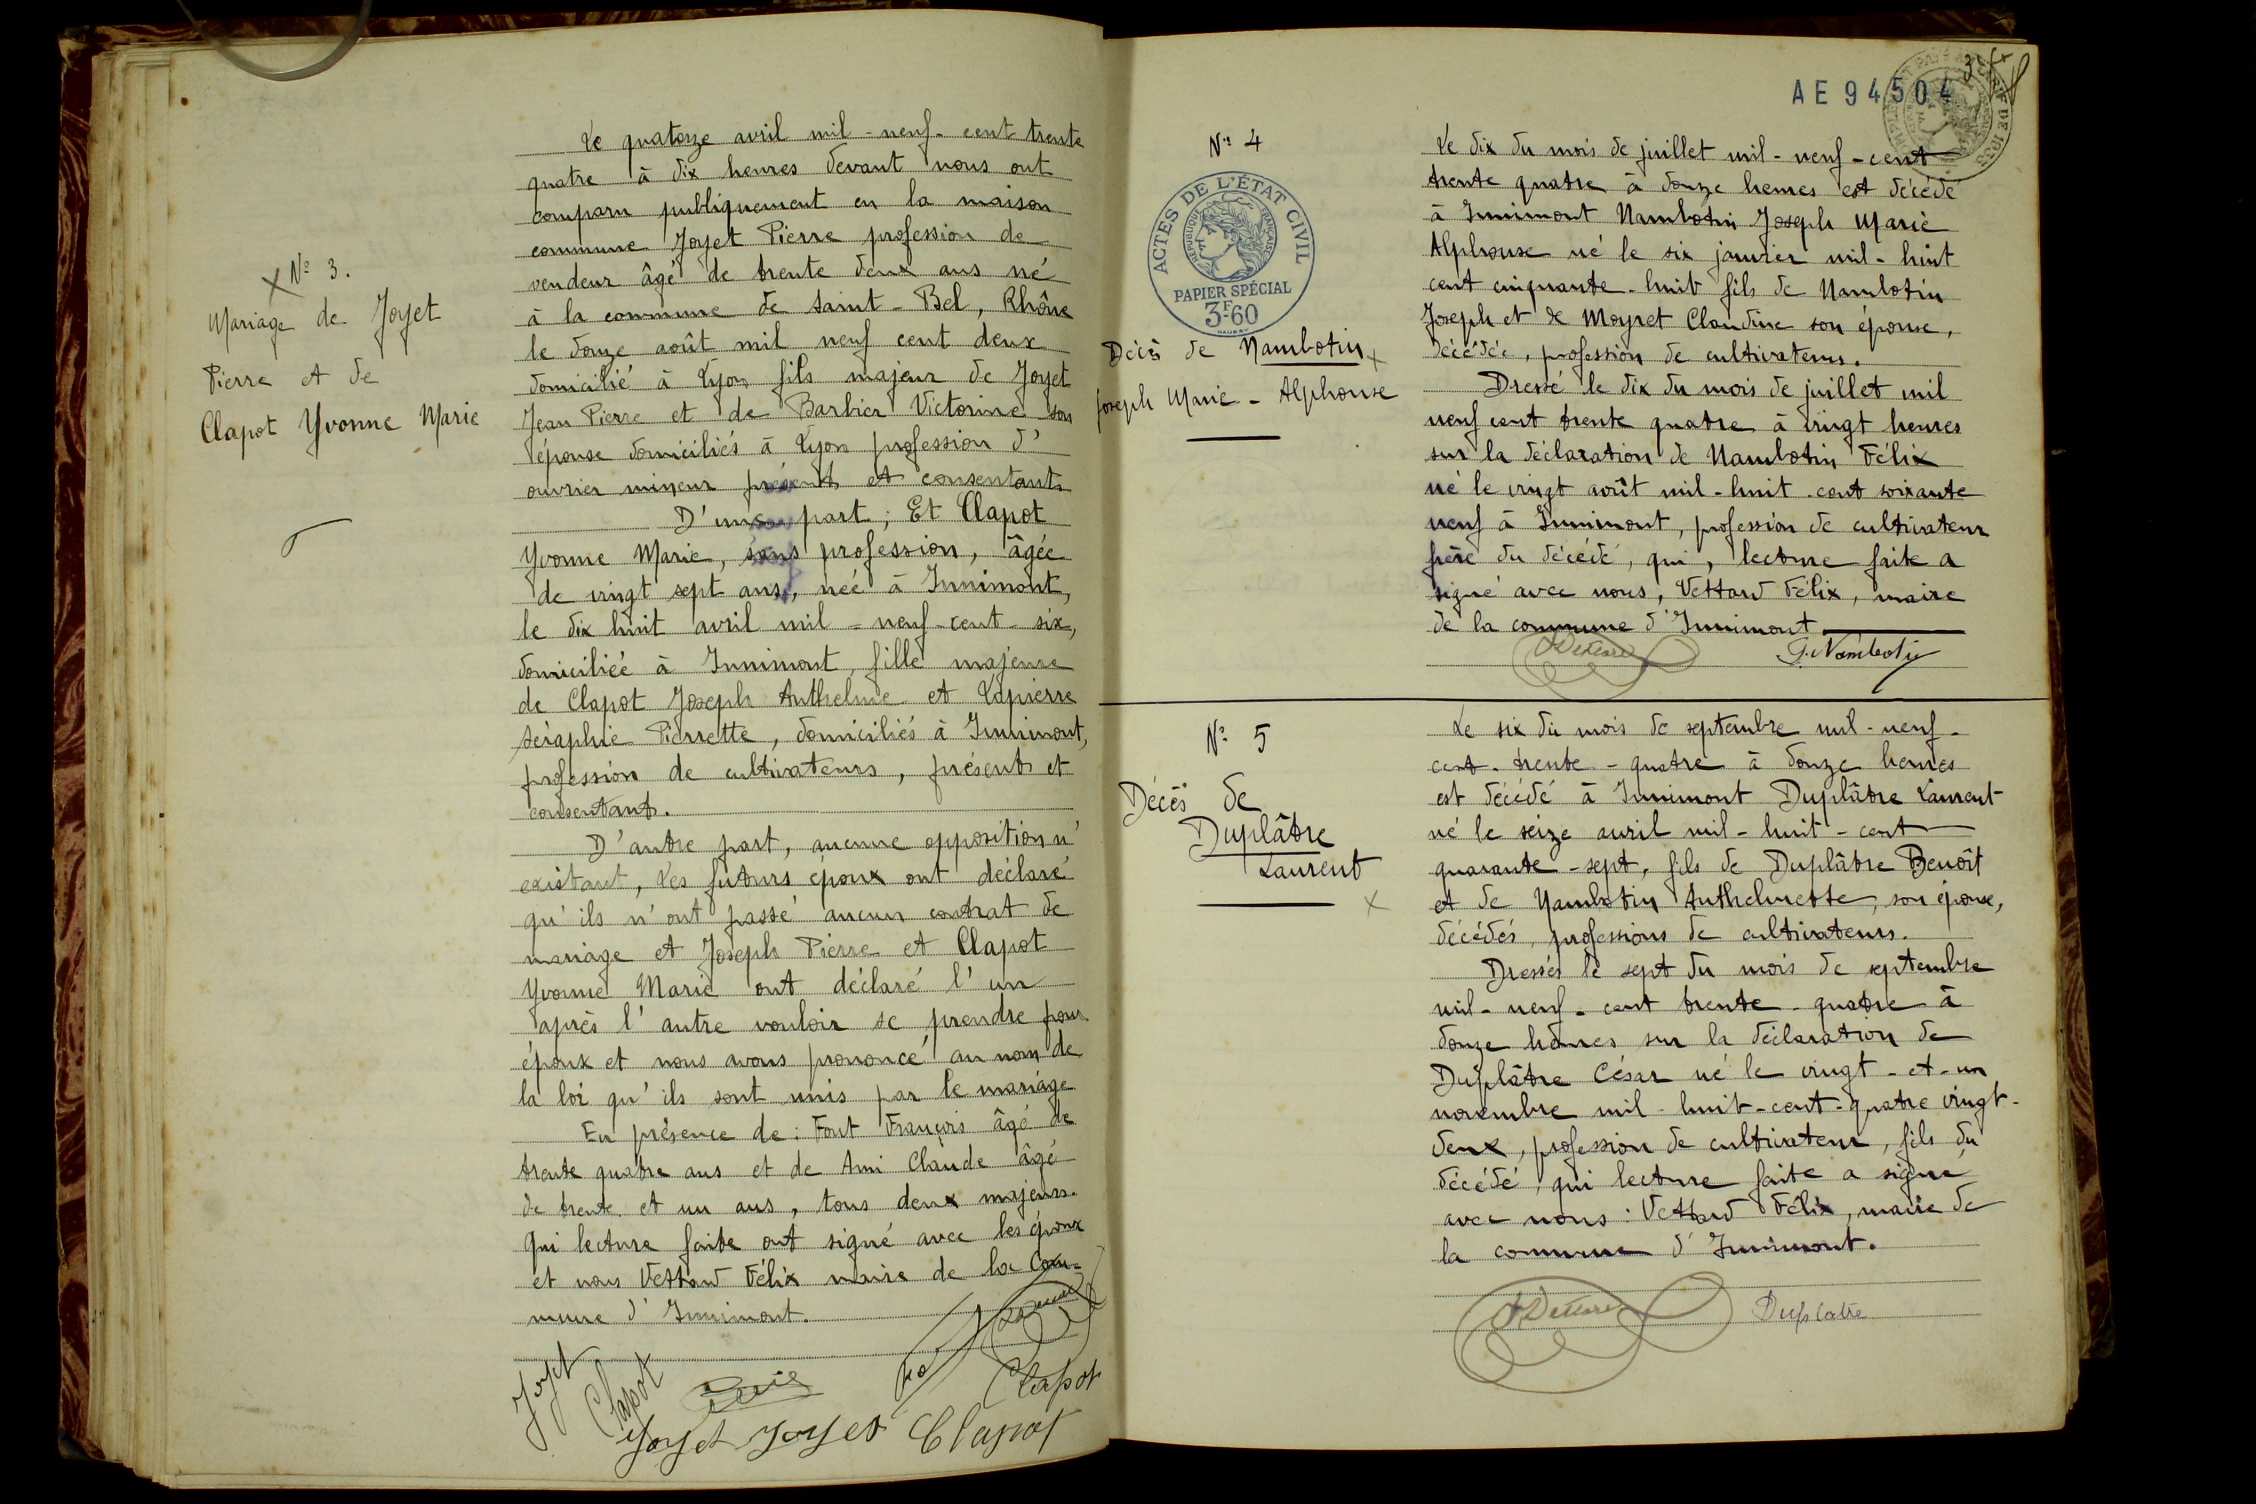 X Nº 3.
Mariage de Joyet
Pierre et de
Clapot Yvonne Marie
Le quatorze avril mil-neuf-cent trente
quatre à dix heures devant nous ont
comparu publiquement en la maison
commune Joyet Pierre profession de
vendeur âgé de trente deux ans né
à la commune de Saint-Bel, Rhône
le douze août mil neuf cent deux
domicilié à Lyon fils majeur de Joyet
Jean Pierre et de Barbier Victorine son
épouse domiciliés à Lyon profession d'
ouvrier mineur présents et consentants
D'une part ; Et Clapot
Yvonne Marie, sans profession, âgée
de vingt sept ans, née à Innimont,
le dix huit avril mil-neuf-cent-six,
domiciliée à Innimont, fille majeure
de Clapot Joseph Anthelme et Lapierre
Séraphie Pierrette, domiciliés à Innimont,
profession de cultivateurs, présents et
consentants.
D'autre part, aucune opposition n'
existant, Les futurs époux ont déclaré
qu'ils n'ont passé aucun contrat de
mariage et Joseph Pierre et Clapot
Yvonne Marie ont déclaré l'un
après l'autre vouloir se prendre pour
époux et nous avons prononcé au nom de
la loi qu'ils sont unis par le mariage
En présence de : Font François âgé de
trente quatre ans et de Ami Claude âgé
de trente et un ans, tous deux majeurs.
Qui lecture faite ont signé avec les époux
et nous Vettard Félix maire de la Com-
mune d'Innimont.
Joyet
Clapot
Clapot
Joyet Joyet Clapot
AE 94504
Nº 4
ACTES DE L'ÉTAT CIVIL
RÉPUBLIQUE FRANÇAISE
PAPIER SPÉCIAL
3F60
Décès de Nambotin X
Joseph Marie-Alphonse
Le dix du mois de juillet mil-neuf-cent
trente quatre à douze heures est décédé
à Innimont Nambotin Joseph Marie
Alphonse né le six janvier mil-huit
cent cinquante-huit fils de Nambotin
Joseph et de Moyret Claudine son épouse,
décédée, profession de cultivateurs.
Dressé le dix du mois de juillet mil
neuf cent trente quatre à vingt heures
sur la déclaration de Nambotin Félix
né le vingt août mil-huit-cent soixante
neuf à Innimont, profession de cultivateur
frère du décédé, qui, lecture faite a
signé avec nous, Vettard Félix, maire
de la commune d'Innimont
Nambotin
Nº 5
Décès de
Duplâtre
Laurent
X
Le six du mois de septembre mil-neuf-
cent-trente-quatre à douze heures
est décédé à Innimont Duplâtre Laurent
né le seize avril mil-huit-cent
quarante-sept, fils de Duplâtre Benoît
et de Nambotin Anthelmette, son épouse,
décédés, professions de cultivateurs.
Dressés le sept du mois de septembre
mil-neuf-cent trente-quatre à
douze heures sur la déclaration de
Duplâtre César né le vingt-et-un
novembre mil-huit-cent-quatre vingt-
deux, profession de cultivateur, fils du
décédé, qui lecture faite a signé
avec nous : Vettard Félix, maire de
la commune d'Innimont.
Duplatre